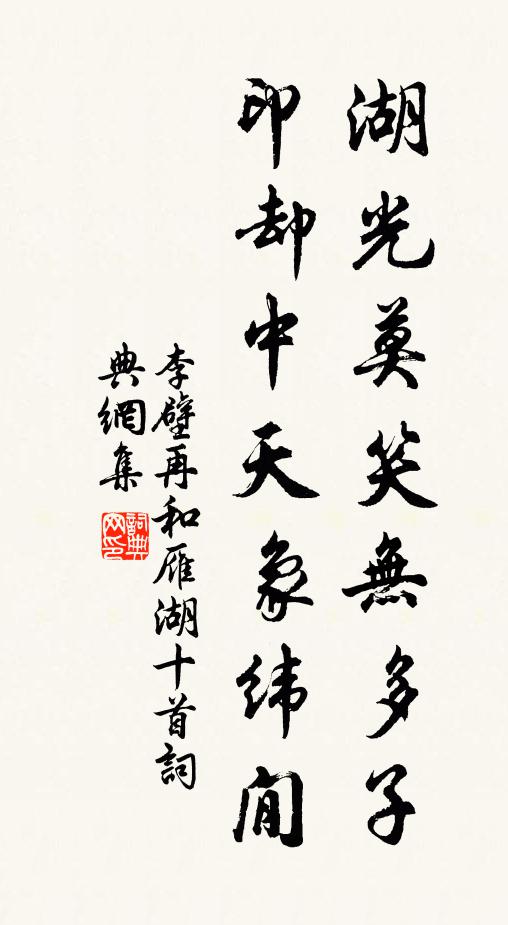 湖光莫笑無多子
印却中天象緯間
李壁再和雁湖十首詞
典網集
詞典網印